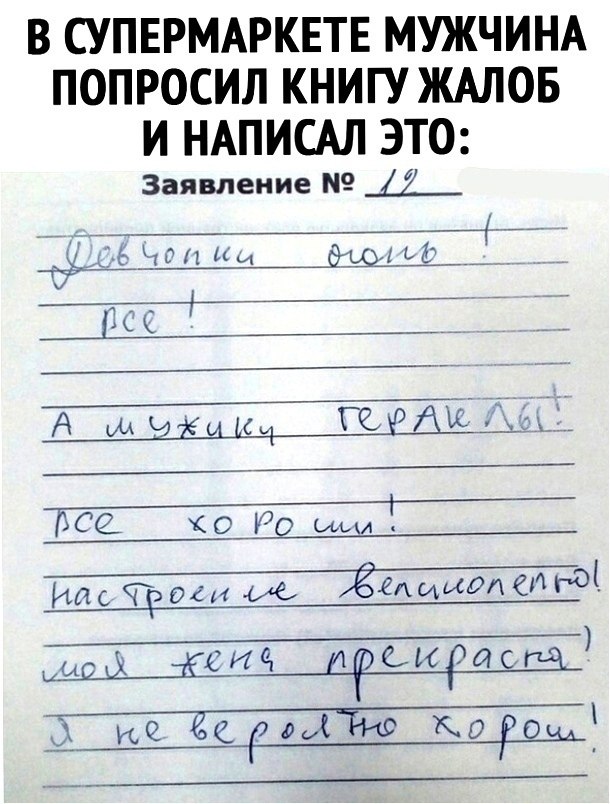 В СУПЕРМАРКЕТЕ МУЖЧИНА
ПОПРОСИЛ КНИГУ ЖАЛОБ
И НАПИСАЛ ЭТО:
Заявление № 19
Девчонки огонь !
все !
А мужики ГЕРАКЛЫ!
все хороши!
настроение великолепно!
моя жена прекрасна!
Я не вероятно хорош!